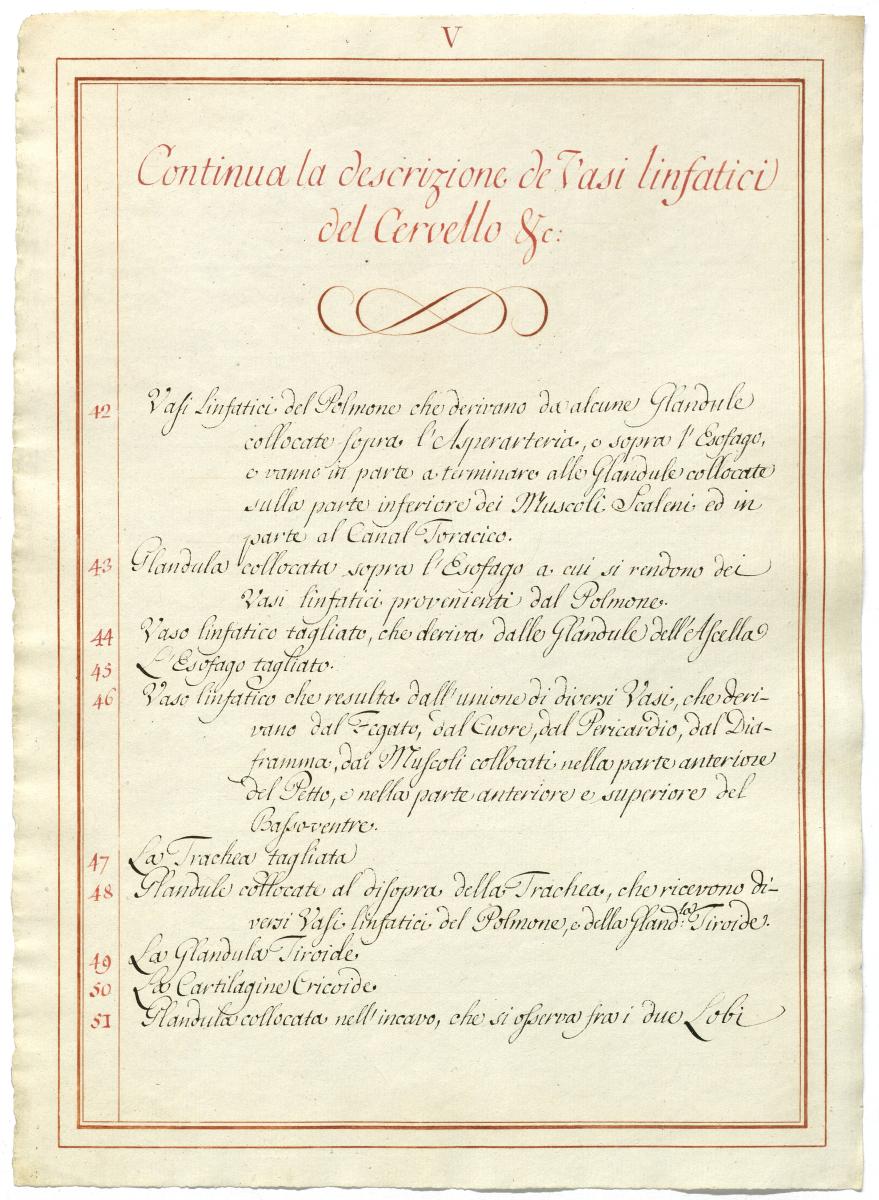 V
Continua la descrizione de Vasi linfatici
del Cervello &c:
42 Vasi Linfatici del Polmone che derivano da alcune Glandule
collocate sopra l'Asperarteria, e sopra l'Esofago,
e vanno in parte a terminare alle Glandule collocate
sulla parte inferiore dei Muscoli Scaleni ed in
parte al Canal Toracico.
43 Glandula collocata sopra l'Esofago a cui si rendono dei
Vasi linfatici provenienti dal Polmone.
44 Vaso linfatico tagliato, che deriva dalle Glandule dell'Ascella
45 L'Esofago tagliato.
46 Vaso linfatico che resulta dall'unione di diversi Vasi, che deri-
vano dal Fegato, dal Cuore, dal Pericardio, dal Dia-
framma, dai Muscoli collocati nella parte anteriore
del Petto, e nella parte anteriore e superiore del
Basso-ventre.
47 La Trachea tagliata
48 Glandule collocate al disopra della Trachea, che ricevono di-
versi Vasi linfatici del Polmone, e della Gland:la Tiroide.
49 La Glandula Tiroide
50 La Cartilagine Cricoide.
51 Glandula collocata nell'incavo, che si osserva fra i due Lobi